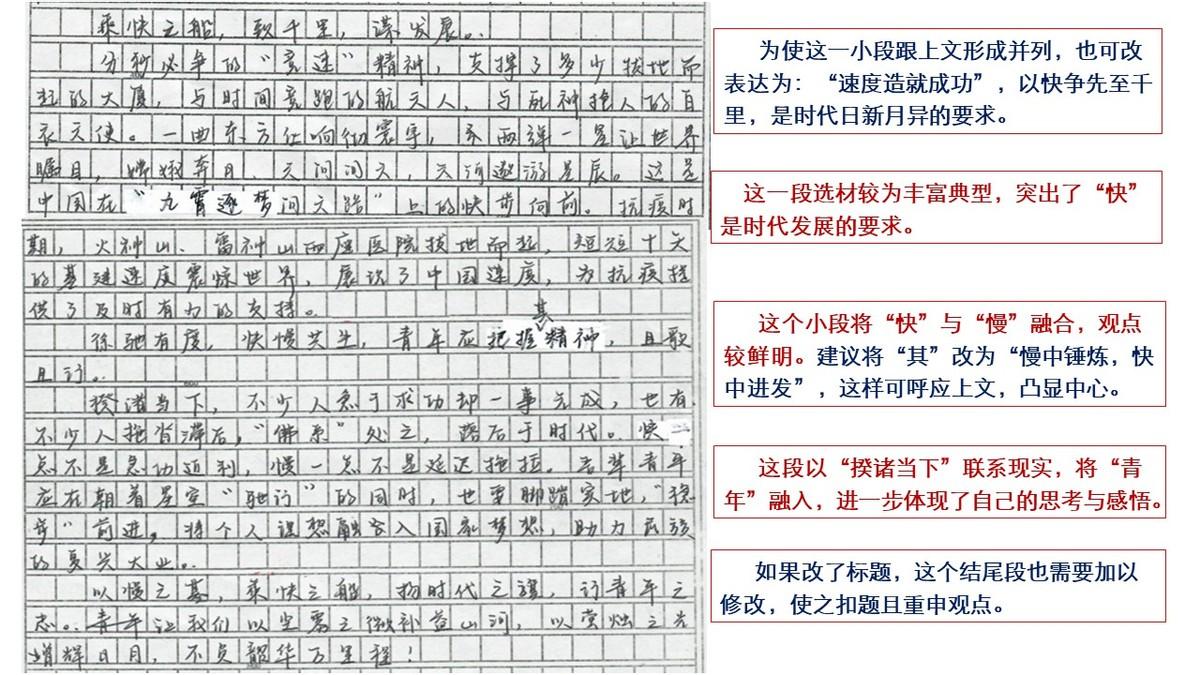 乘快之船，致千里，谋发展。
分秒必争的“竞速”精神，支撑了多少拔地而
起的大厦，与时间竞跑的航天人，与死神抢人的白
衣天使。一曲东方红响彻寰宇，令两弹一星让世界
瞩目，嫦娥奔月、天问问天，天河遨游星辰。这是
中国在“九霄逐梦问天路”上的快步向前。抗疫时
期，火神山、雷神山两座医院拔地而起，短短十天
的基建速度震惊世界，展议了中国速度，为抗疫提
供了及时有力的支持。
徐驰有度，快慢共生，青年应把握其精神，且歌
且行。
揆诸当下，不少人急于求功却一事无成，也有
不少人拖沓滞后，“佛系”处之，落后于时代。快一
点不是急功近利，慢一点不是延迟拖拉。吾辈青年
应在朝着星空“驰行”的同时，也要脚蹋实地，“稳
步”前进，将个人理想融容入国家梦想，助力民族
的复兴大业。
以慢之基，乘快之船，扬时代之旗，行青年之
志。让我们以尘雾之微补益山河，以萤烛之光
增辉日月，不负韶华万里程！
为使这一小段跟上文形成并列，也可改
表达为：“速度造就成功”，以快争先至千
里，是时代日新月异的要求。
这一段选材较为丰富典型，突出了“快”
是时代发展的要求。
这个小段将“快”与“慢”融合，观点
较鲜明。建议将“其”改为“慢中锤炼，快
中迸发”，这样可呼应上文，凸显中心。
这段以“揆诸当下”联系现实，将“青
年”融入，进一步体现了自己的思考与感悟。
如果改了标题，这个结尾段也需要加以
修改，使之扣题且重申观点。